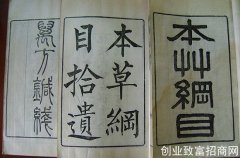 本艸綱目
本草綱
目拾遺
萬方鍼线
创业致富招商网